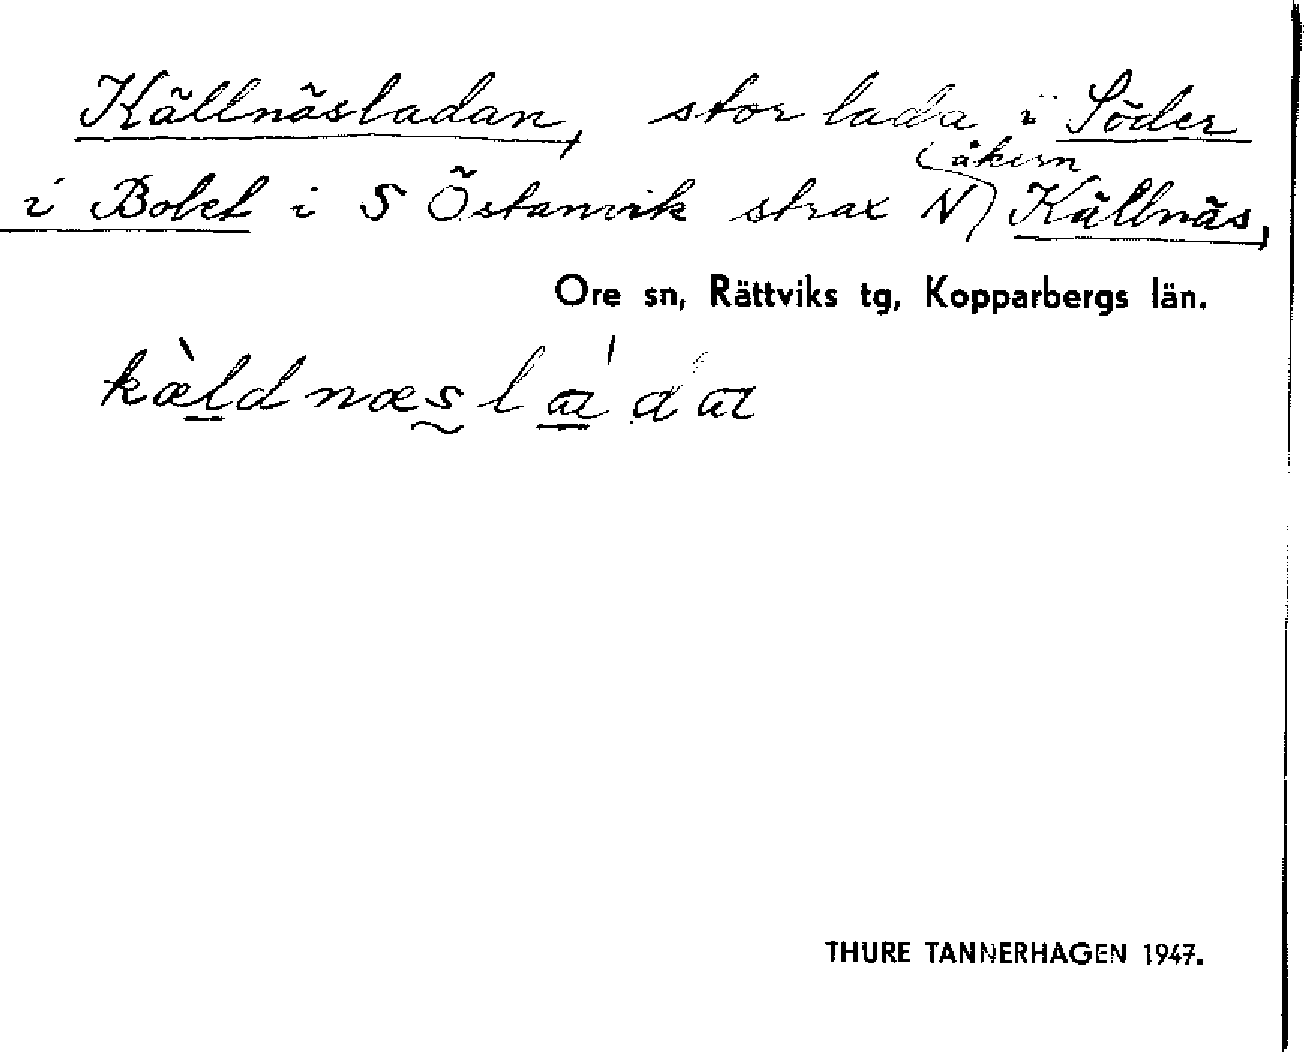 Källnäsladan, stor lada i Söder
i Bolet i S Östanvik strax N åkern Källnäs,
Ore sn, Rättviks tg, Kopparbergs län.
kæ̀ldnæslá̄da
THURE TANNERHAGEN 1947.